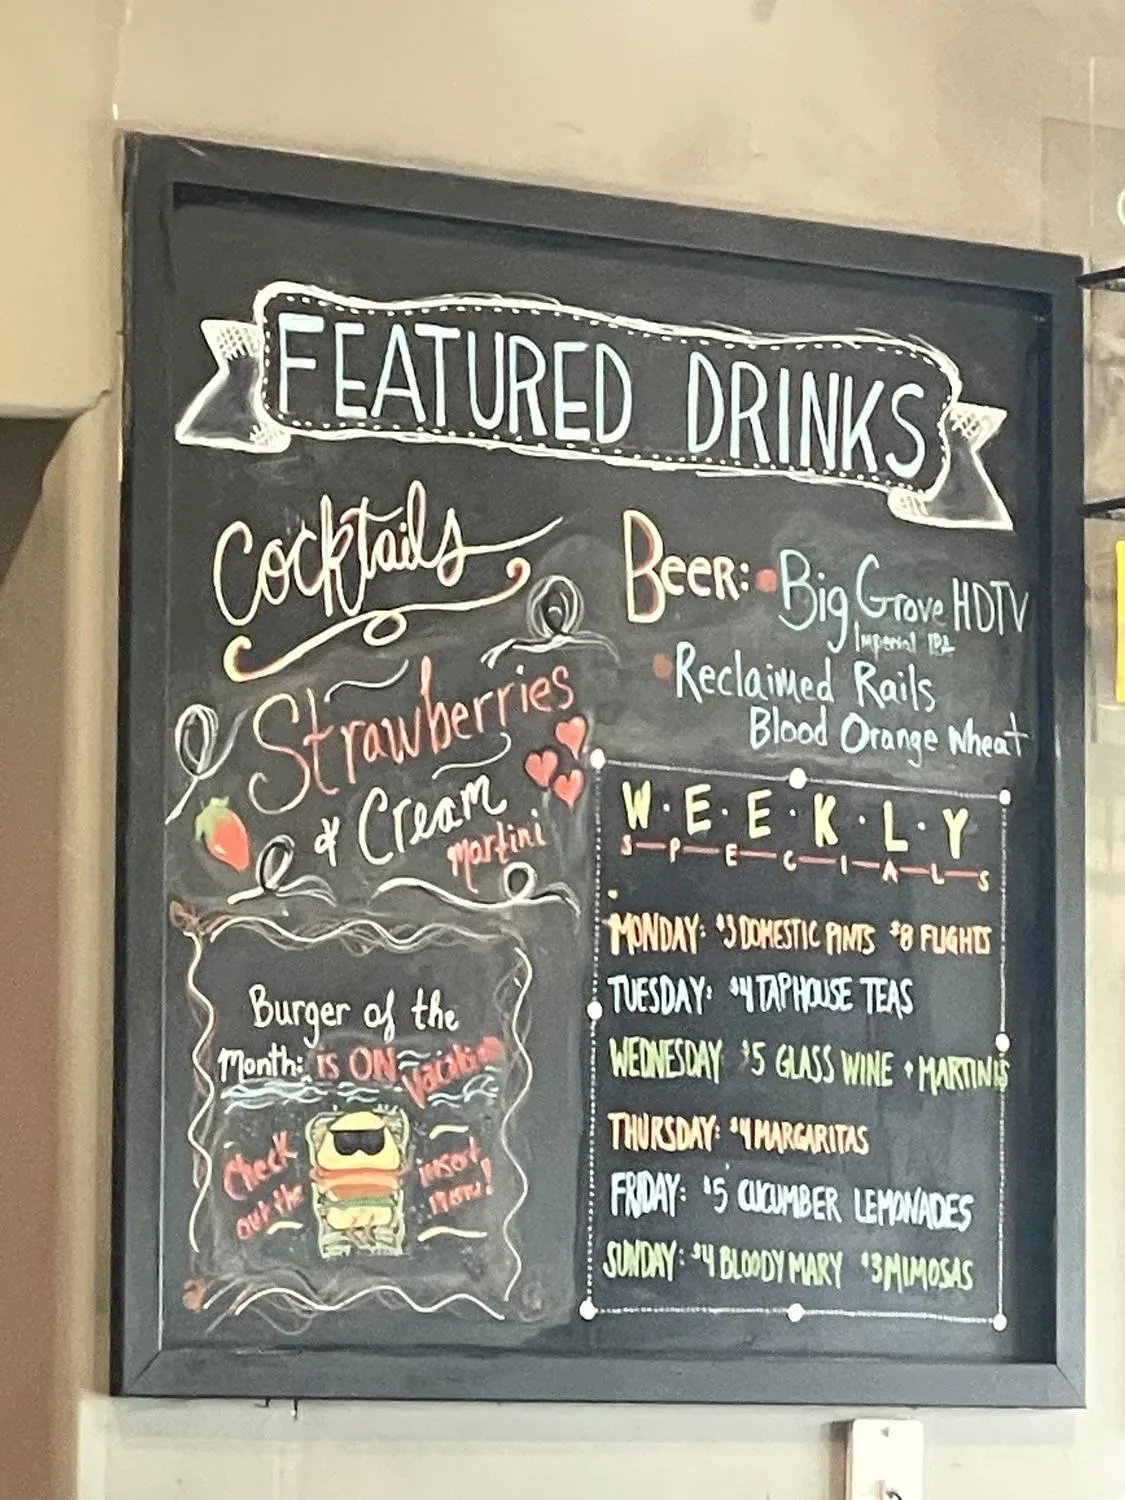 FEATURED DRINKS
Cocktails
Strawberries
& Cream
martini
Beer: Big Grove HDTV
Imperial IPA
Reclaimed Rails
Blood Orange Wheat
W·E·E·K·L·Y
S-P-E-C-I-A-L-S
MONDAY: $3 DOMESTIC PINTS $8 FLIGHTS
TUESDAY: $4 TAPHOUSE TEAS
WEDNESDAY $5 GLASS WINE + MARTINIS
THURSDAY: $4 MARGARITAS
FRIDAY: $5 CUCUMBER LEMONADES
SUNDAY: $4 BLOODY MARY $3 MIMOSAS
Burger of the
Month: is ON vacation
Check
out the
insert
menu!